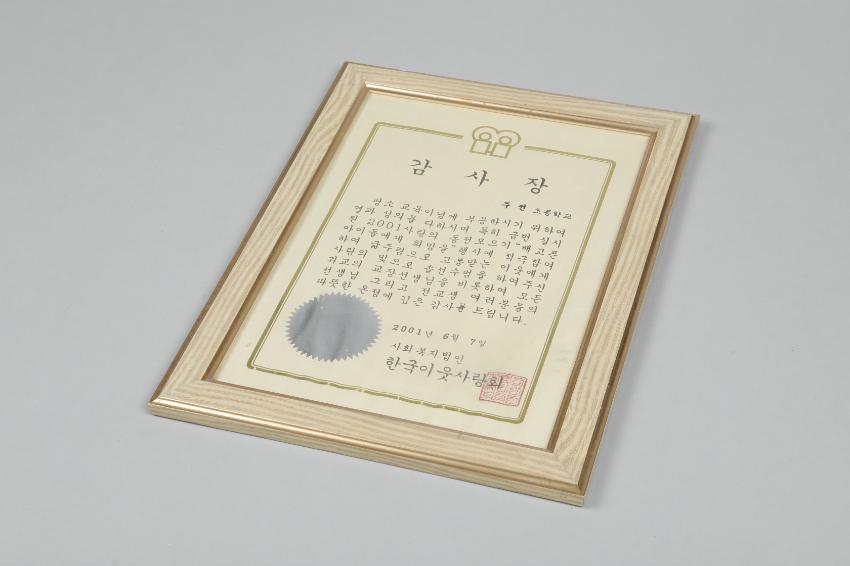 감 사 장
주 연 초등학교
평소 교육이념에 부응하시기 위하여
열과 성의를 다하시며 특히 금번 실시
된 2001사랑의 동전모으기 "배고픈
아이들에게 희망을" 행사에 적극참여
하여 굶주림으로 고통받는 이웃에게
사랑의 빛으로 솔선수범을 하여주신
귀교의 교장선생님을 비롯하여 모든
선생님 그리고 전교생 여러분들의
따뜻한 온정에 깊은 감사를 드립니다.
2001년 6월 7일
사회복지법인
한국이웃사랑회